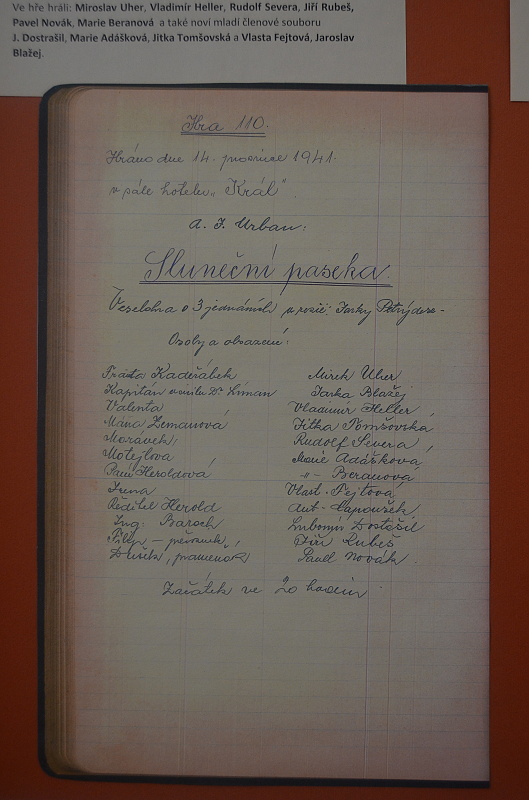 Ve hře hráli: Miroslav Uher, Vladimír Heller, Rudolf Severa, Jiří Rubeš,
Pavel Novák, Marie Beranová a také noví mladí členové souboru
J. Dostrašil, Marie Adášková, Jitka Tomšovská a Vlasta Fejtová, Jaroslav
Blažej.
Hra 110.
Hráno dne 14. prosince 1941.
v sále hotelu „Král“.
A. J. Urban:
Sluneční paseka.
Veselohra o 3 jednáních
Osoby a obsazení:
Kadeřábek Mirek Uher
Kapitán Jarka Blažej
Valenta Vladimír Heller
Máňa Zemanová Jitka Tomšovská
Morávek Rudolf Severa
Motejlová Marie Adášková
Paní Heroldová -"- Beranová
Irena Vlast. Fejtová
Ředitel Herold Ant.
Ing. Baroch Lubomír Dostášil
Filip Jiří Rubeš
Dušek, Pavel Novák
Začátek ve 20 hodin